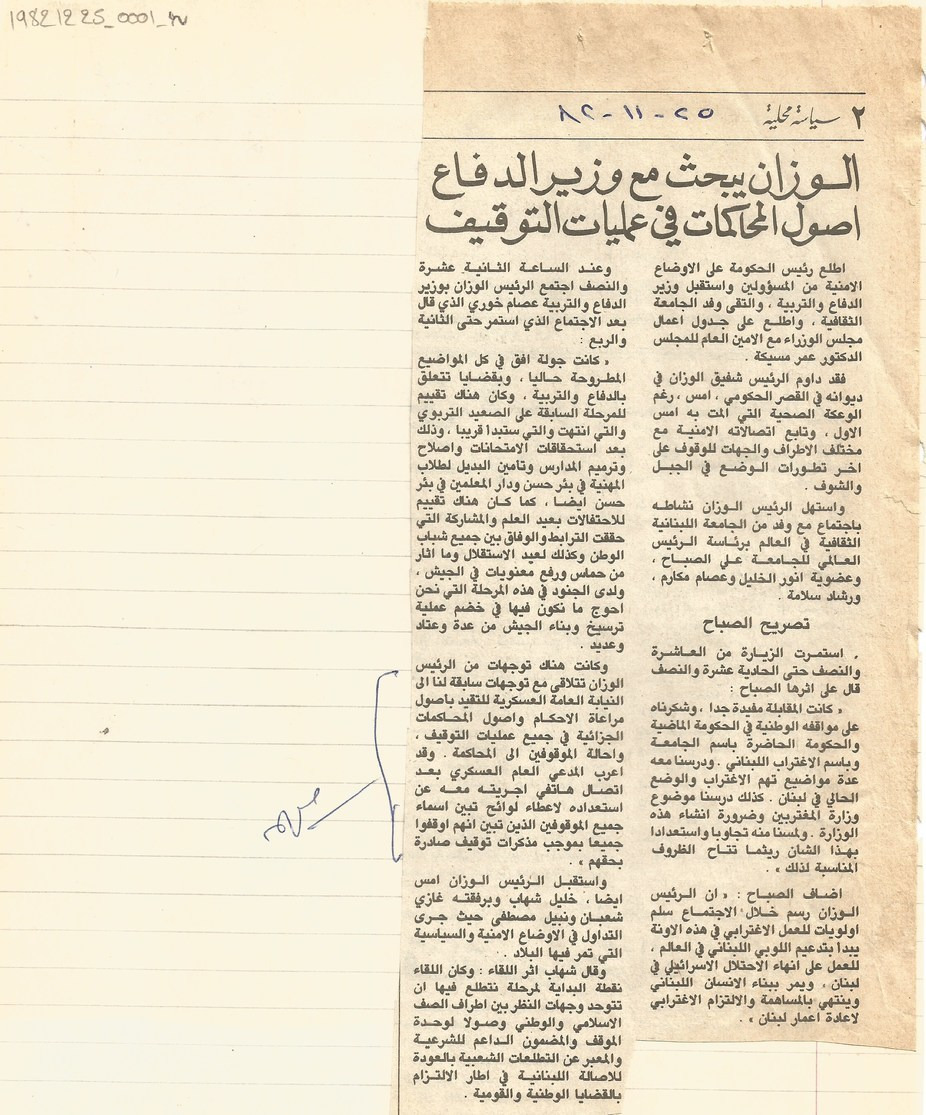 19821225_0001_
٢ سياسة محلية
٢٥-١١-٨٢
الوزان يبحث مع وزير الدفاع
اصول المحاكمات في عمليات التوقيف
اطلع رئيس الحكومة على الاوضاع
الامنية من المسؤولين واستقبل وزير
الدفاع والتربية ، والتقى وفد الجامعة
الثقافية ، واطلع على جدول اعمال
مجلس الوزراء مع الامين العام للمجلس
الدكتور عمر مسيكة .
فقد داوم الرئيس شفيق الوزان في
ديوانه في القصر الحكومي ، امس ، رغم
الوعكة الصحية التي المت به امس
الاول ، وتابع اتصالاته الامنية مع
مختلف الاطراف والجهات للوقوف على
اخر تطورات الوضع في الجبل
والشوف .
واستهل الرئيس الوزان نشاطه
باجتماع مع وفد من الجامعة اللبنانية
الثقافية في العالم برئاسة الرئيس
العالمي للجامعة علي الصباح ،
وعضوية انور الخليل وعصام مكارم ،
ورشاد سلامة .
تصريح الصباح
استمرت الزيارة من العاشرة
والنصف حتى الحادية عشرة والنصف
قال على اثرها الصباح :
« كانت المقابلة مفيدة جدا ، وشكرناه
على مواقفه الوطنية في الحكومة الماضية
والحكومة الحاضرة باسم الجامعة
وباسم الاغتراب اللبناني . ودرسنا معه
عدة مواضيع تهم الاغتراب والوضع
الحالي في لبنان . كذلك درسنا موضوع
وزارة المغتربين وضرورة انشاء هذه
الوزارة . ولمسنا منه تجاوبا واستعدادا
بهذا الشان ريثما تتاح الظروف
المناسبة لذلك » .
اضاف الصباح : « ان الرئيس
الوزان رسم خلال الاجتماع سلم
اولويات للعمل الاغترابي في هذه الاونة
يبدأ بتدعيم اللوبي اللبناني في العالم ،
للعمل على انهاء الاحتلال الاسرائيلي في
لبنان ، ويمر ببناء الانسان اللبناني
وينتهي بالمساهمة والالتزام الاغترابي
لاعادة اعمار لبنان » .
وعند الساعة الثانية عشرة
والنصف اجتمع الرئيس الوزان بوزير
الدفاع والتربية عصام خوري الذي قال
بعد الاجتماع الذي استمر حتى الثانية
والربع :
« كانت جولة افق في كل المواضيع
المطروحة حاليا ، وبقضايا تتعلق
بالدفاع والتربية ، وكان هناك تقييم
للمرحلة السابقة على الصعيد التربوي
والتي انتهت والتي ستبدأ قريبا ، وذلك
بعد استحقاقات الامتحانات واصلاح
وترميم المدارس وتامين البديل لطلاب
المهنية في بئر حسن ودار المعلمين في بئر
حسن ايضا ، كما كان هناك تقييم
للاحتفالات بعيد العلم والمشاركة التي
حققت الترابط والوفاق بين جميع شباب
الوطن وكذلك لعيد الاستقلال وما اثار
من حماس ورفع معنويات في الجيش ،
ولدى الجنود في هذه المرحلة التي نحن
احوج ما نكون فيها في خضم عملية
ترسيخ وبناء الجيش من عدة وعتاد
وعديد .
وكانت هناك توجهات من الرئيس
الوزان تتلاقى مع توجهات سابقة لنا الى
النيابة العامة العسكرية للتقيد باصول
مراعاة الاحكام واصول المحاكمات
الجزائية في جميع عمليات التوقيف ،
واحالة الموقوفين الى المحاكمة . وقد
اعرب المدعي العام العسكري بعد
اتصال هاتفي اجريته معه عن
استعداده لاعطاء لوائح تبين اسماء
جميع الموقوفين الذين تبين انهم اوقفوا
جميعا بموجب مذكرات توقيف صادرة
بحقهم » .
واستقبل الرئيس الوزان امس
ايضا ، خليل شهاب وبرفقته غازي
شعبان ونبيل مصطفى حيث جرى
التداول في الاوضاع الامنية والسياسية
التي تمر فيها البلاد .
وقال شهاب اثر اللقاء : وكان اللقاء
نقطة البداية لمرحلة نتطلع فيها ان
تتوحد وجهات النظر بين اطراف الصف
الاسلامي والوطني وصولا لوحدة
الموقف والمضمون الداعم للشرعية
والمعبر عن التطلعات الشعبية بالعودة
للاصالة اللبنانية في اطار الالتزام
بالقضايا الوطنية والقومية .